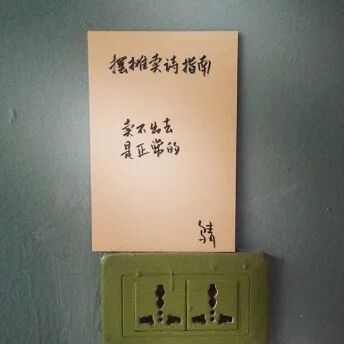 摆摊卖诗指南
卖不出去
是正常的